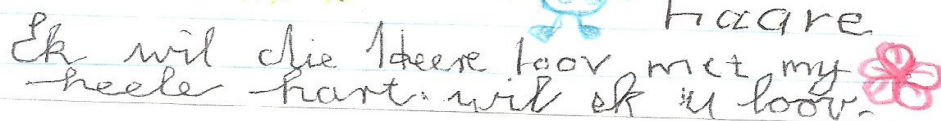 Haare
Ek wil die Heere loov met my
heele hart. wil ek u loov.